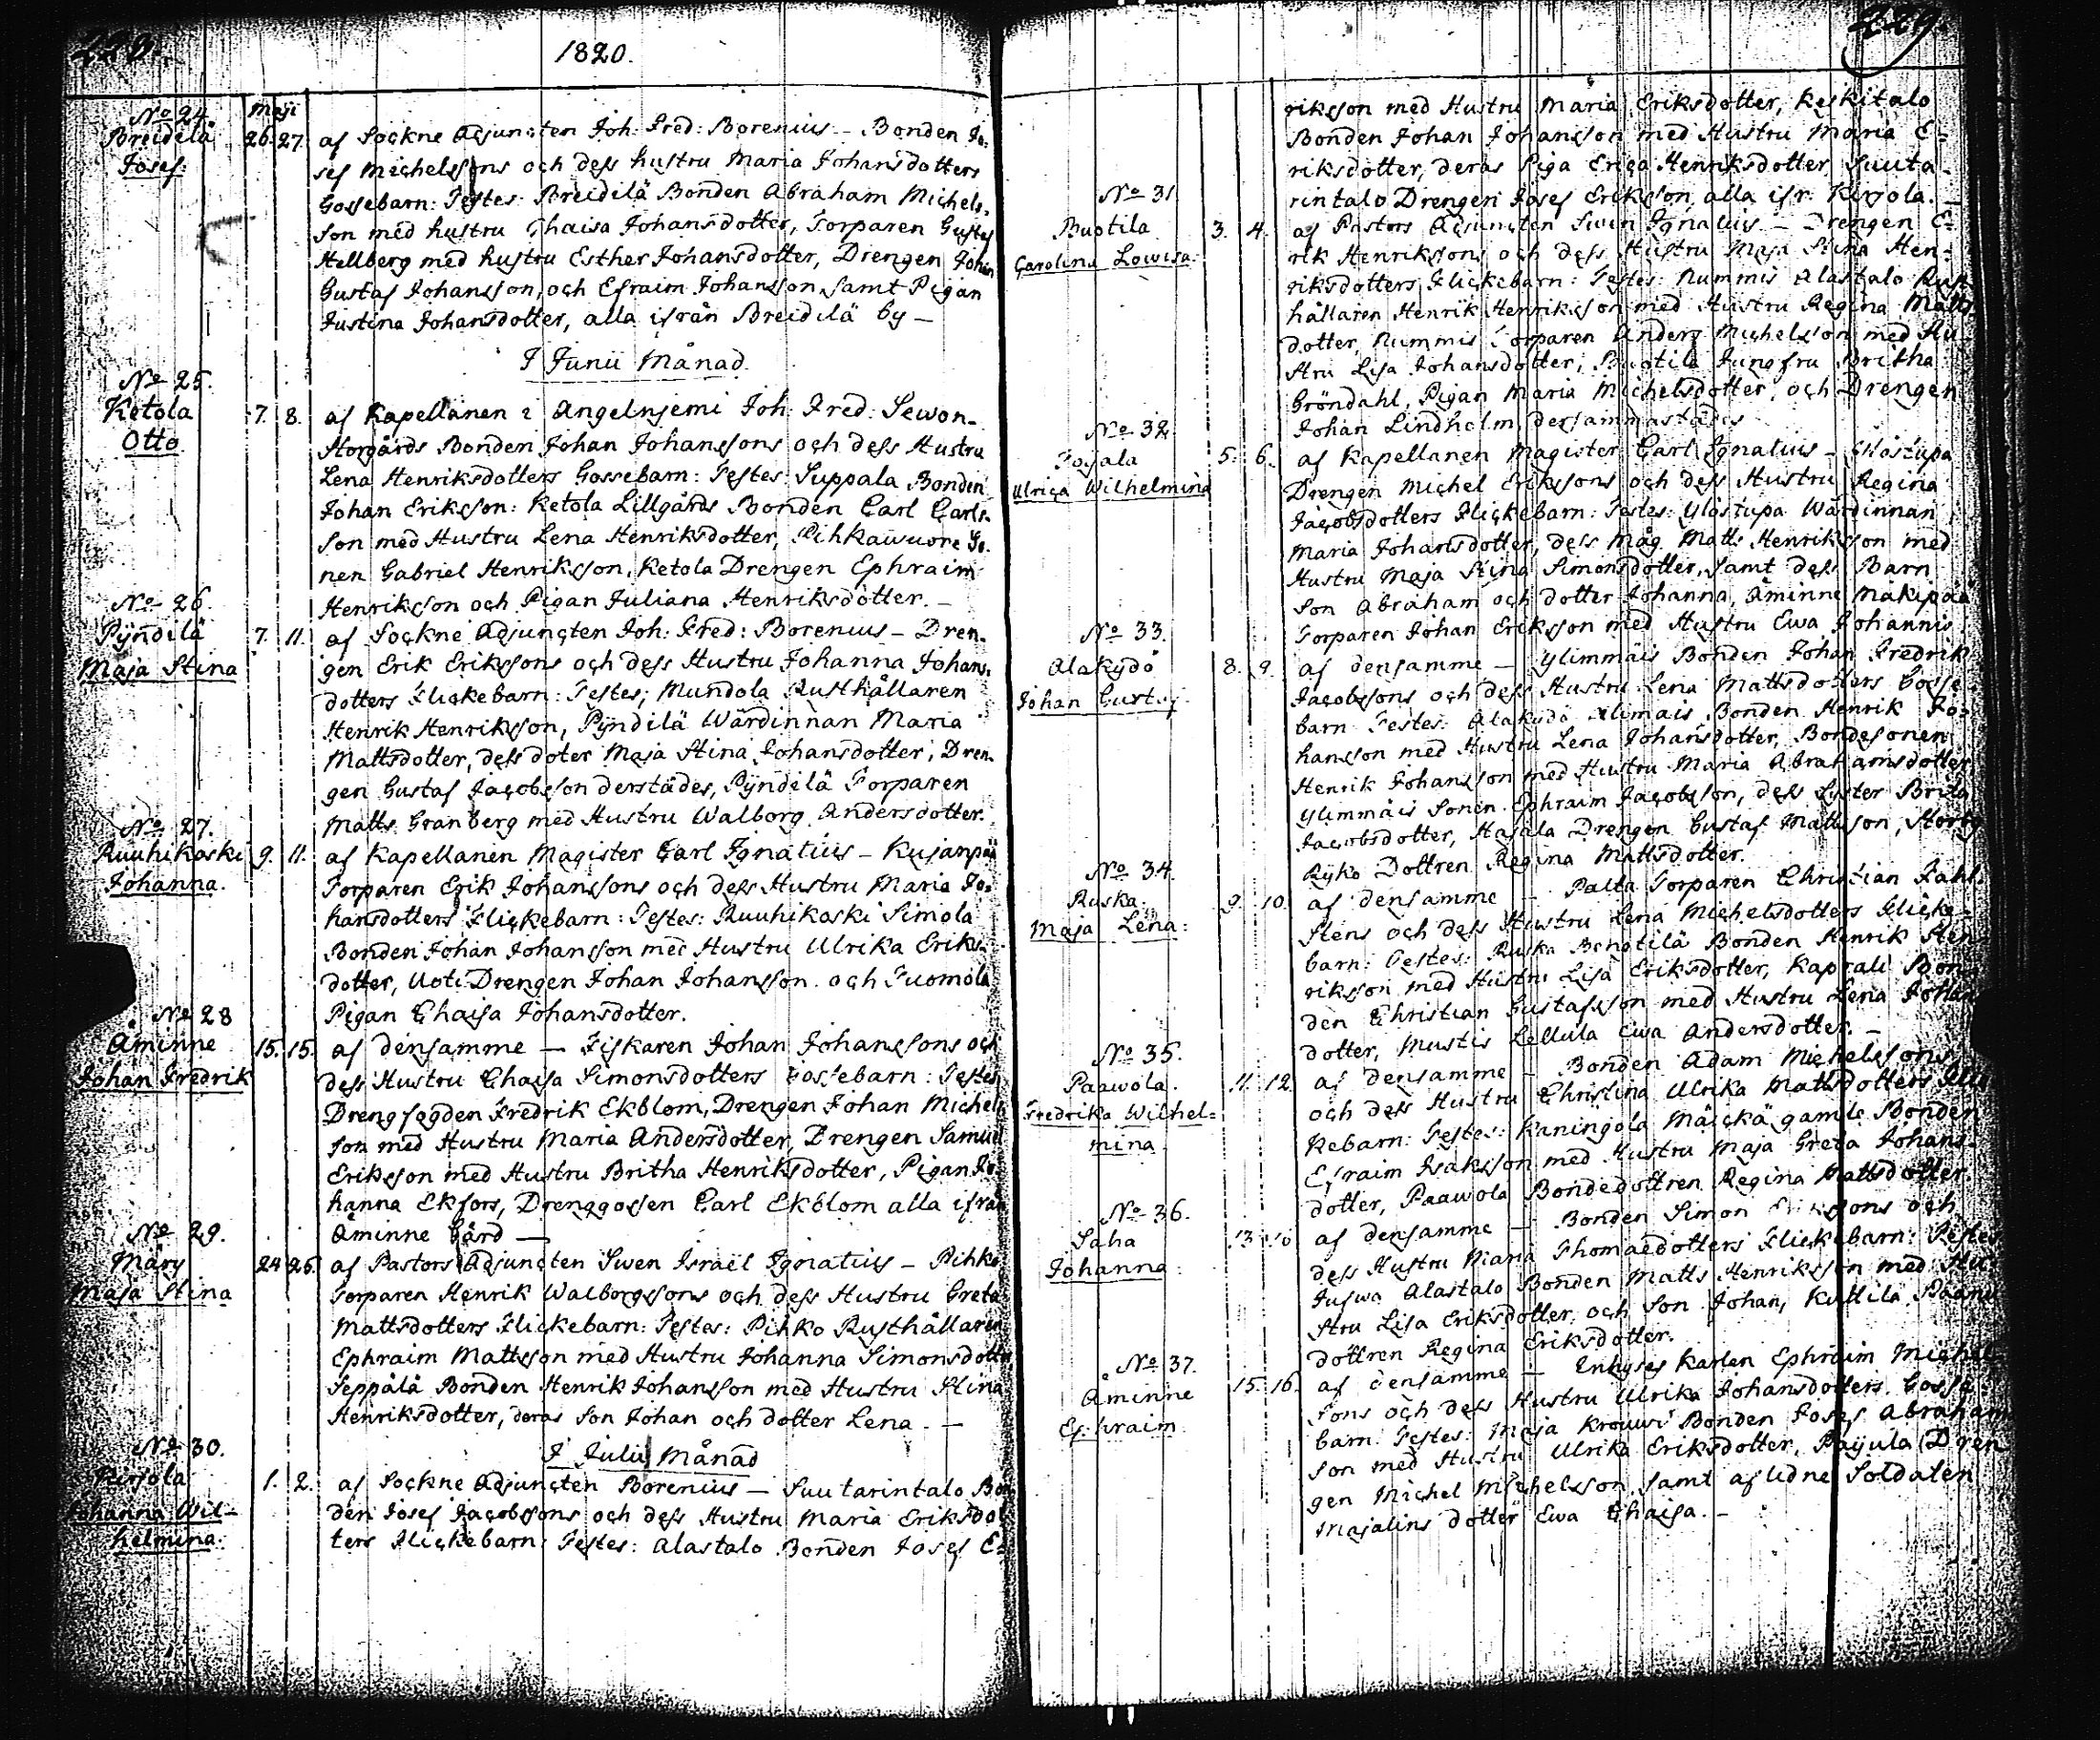 228.
1820.
Maji
No 24.
Breidelä
Josef.
26. 27. af Sockne Adjuncten Joh: Fred: Borenius - Bonden Jo-
sef Michelssons och dess hustru Maria Johansdotters
Gossebarn: Testes: Breidilä Bonden Abraham Michels-
son med hustru Chaisa Johansdotter, Torparen Gustaf
Hellberg med hustru Esther Johansdotter, Drengen Johan
Gustaf Johansson, och Efraim Johansson, samt Pigan
Justina Johansdotter, alla ifrån Breidilä by -
I Junii Månad.
No 25.
Ketola
Otto
7. 8. af Kapellanen i Angelnjemi Joh: Fred: Sewon-
Storgårds Bonden Johan Johanssons och dess Hustru
Lena Henriksdotters Gossebarn: Testes: Suppala Bonden
Johan Eriksson: Ketola Lillgårds Bonden Carl Carls-
son med Hustru Lena Henriksdotter, Pihkawuore So-
nen Gabriel Henriksson, Ketola Drengen Ephraim
Henriksson och Pigan Juliana Henriksdotter. -
No 26.
Pÿndilä
Maja Stina
7. 11. af Sockne Adjuncten Joh: Fred: Borenius - Dren-
gen Erik Erikssons och dess Hustru Johanna Johans-
dotters Flickebarn: Testes; Mundola Rusthållaren
Henrik Henriksson, Pÿndilä Wärdinnan Maria
Mattsdotter, dess doter Maja Stina Johansdotter, Dren-
gen Gustaf Jacobsson derstädes, Pÿndilä Torparen
Matts Granberg med Hustru Walborg Andersdotter.
No 27.
Ruuhikoski
Johanna.
9. 11. af Kapellanen Magister Carl Ignatius - Kujanpää
Torparen Erik Johanssons och dess Hustru Maria Jo-
hansdotters Flickebarn: Testes: Ruuhikoski Simola
Bonden Johan Johansson med Hustru Ulrika Eriks-
dotter, Uoti Drengen Johan Johansson och Tuomola
Pigan Chaisa Johansdotter.
No 28
Åminne
Johan Fredrik
15. 15. af densamme - Fiskaren Johan Johanssons och
dess Hustru Chaisa Simonsdotters Gossebarn: Testes
Drengfogden Fredrik Ekblom, Drengen Johan Michels
son med Hustru Maria Andersdotter, Drengen Samuel
Eriksson med Hustru Britha Henriksdotter, Pigan Jo-
hanna Ekfors, Drenggossen Carl Ekblom alla ifrån
Åminne Gård -
No 29.
Märy
Maja Stina
24 25. af Pastors Adjuncten Swen Israël Ignatius - Pihko
Torparen Henrik Walborgssons och dess Hustru Greta
Mattsdotters Flickebarn: Testes: Pihko Rusthållaren
Ephraim Mattsson med Hustru Johanna Simonsdotter
Seppälä Bonden Henrik Johansson med Hustru Stina
Henriksdotter, deras Son Johan och dotter Lena. -
I Julii Månad
No 30.
Kirjola
Johanna Wil-
helmina.
1. 2. af Sockne Adjuncten Borenius - Suutarintalo Bon
den Josef Jacobssons och dess Hustru Maria Eriksdot
ters Flickebarn: Testes: Alastalo Bonden Josef E-
229.
riksson med Hustru Maria Eriksdotter, Keskitalo
Bonden Johan Johansson med Hustru Maria E-
riksdotter, deras Piga Erica Henriksdotter, Suuta-
rintalo Drengen Josef Eriksson alla ifr. Kirjola. -
No 31
Buotila
Carolina Lowisa.
3. 4. af Pastors Adjuncten Swen Ignatius - Drengen E-
rik Henrikssons och dess Hustru Maja Stina Hen-
riksdotters Flickebarn: Testes: Nummis Alastalo Rust
hållaren Henrik Henriksson med Hustru Regina Matts-
dotter, Nummis Torparen Anders Michelsson med Hu-
stru Lisa Johansdotter, Buotila Jungfru Britha
Gröndahl, Pigan Maria Michelsdotter, och Drengen
Johan Lindholm dersammastädes
No 32
Ulrica Wilhelmina
5. 6. af Kapellanen Magister Carl Ignatius -
Drengen Michel Erikssons och dess Hustru Regina
Jacobsdotters Flickebarn: Testes: Ylöstupa Wärdinnan
Maria Johansdotter, dess måg Matts Henriksson med
Hustru Maja Stina Simonsdotter, samt dess Barn
Son Abraham och dotter Johanna, Åminne Mäkipää
Torparen Johan Eriksson med Hustru Ewa Johannis
No 33.
Alakÿdö
Johan Gust.
8. 9. af densamme - Ylimmäis Bonden Johan Fredrik
Jacobssons och dess Hustru Lena Mattsdotters Gosse-
barn Testes: Alakydö Alimais Bonden Henrik Jo-
hansson med Hustru Lena Johansdotter, Bondesonen
Henrik Johansson med Hustru Maria Abrahamsdotter
Ylimmäis Sonen Ephraim Jacobsson, dess Syster Brita
Jacobsdotter, Drengen Gustaf Mattsson,
Dottren Regina Mattsdotter.
No 34.
Ruska.
Maja Lena:
9. 10. af densamme - Palta Torparen Christian Fahl
stens och dess Hustru Lena Michelsdotters Flicke-
barn: Testes: Ruska Bonden Henrik Hen-
riksson med Hustru Lisa Eriksdotter, Kaprali Bon-
den Christian Gustafsson med Hustru Lena Johans
dotter, Mustis Lellula Ewa Andersdotter. -
No 35.
Paawola.
Fredrika Wilhel-
mina
11. 12. af densamme - Bonden Adam Michelssons
och dess Hustru Christina Ulrika Mattsdotters Flic
kebarn: Testes: Kaningola Mäckä gamle Bonden
Efraim Isaksson med Hustru Maja Greta Johans-
dotter, Paawola Bondedottren Regina Mattsdotter.
No 36.
Saha
Johanna:
13 af densamme - Bonden Simon och
dess Hustru Maria Thomaedotters Flickebarn: Testes
Alastalo Bonden Matts Henriksson med Hu-
stru Lisa Eriksdotter och Son Johan, Kuttila
dottren Regina Eriksdotter.
No 37.
Åminne
Ephraim
15. 16. af densamme - Inhyses Karlen Ephraim Michel
sons och dess Hustru Ulrika Johansdotters Gosse-
barn. Testes: Maja Krouwi Bonden Josef Abraham
son med Hustru Ulrika Eriksdotter, Dren
gen Michel Michelsson samt aflidne Soldaten
Majalins dotter Ewa Chaisa. -